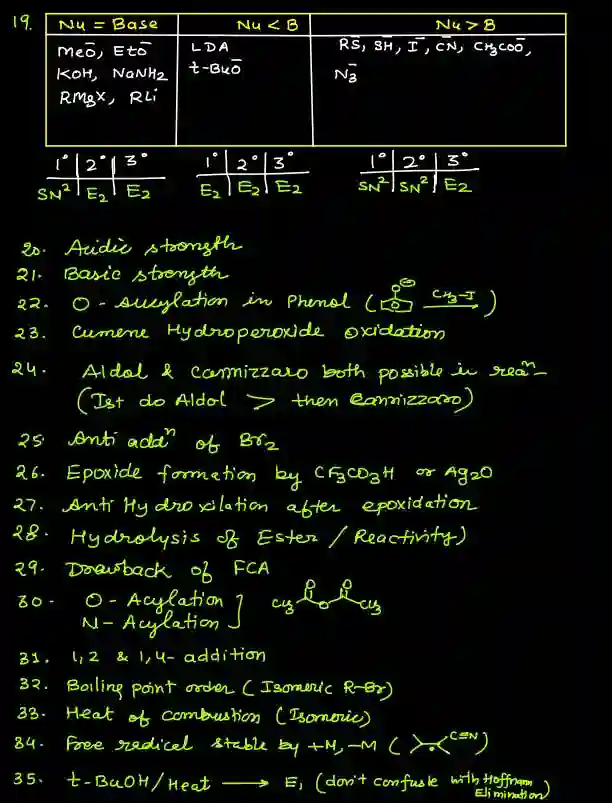 19.
Nu = Base Nu < B Nu > B
MeO⁻, EtO⁻ LDA RS⁻, SH⁻, I⁻, CN⁻, CH3COO⁻,
KOH, NaNH2 t-BuO⁻ N3⁻
RMgX, RLi
1° 2° 3° 1° 2° 3° 1° 2° 3°
SN² E2 E2 E2 E2 E2 SN² SN² E2
20. Acidic strength
21. Basic strength
22. O - in Phenol ( O⊖ CH3-I → )
23. Cumene Hydroperoxide oxidation
24. Aldol & Cannizzaro both possible in reaⁿ-
(Ist do Aldol > then Cannizzaro)
25. Anti addⁿ of Br2
26. Epoxide formation by CF3CO3H or Ag2O
27. Anti Hydroxilation after epoxidation
28. Hydrolysis of Ester / Reactivity)
29. Drawback of FCA
30- O - Acylation ] CH3 O O O CH3
N - Acylation
31. 1,2 & 1,4- addition
32. Boiling point order ( Isomeric R-Br)
33. Heat of combustion ( Isomeric)
34. Free radical stable by +M, -M ( C≡N )
35. t-BuOH/Heat ⟶ E1 (don't confuse with Hoffmann
Elimination)